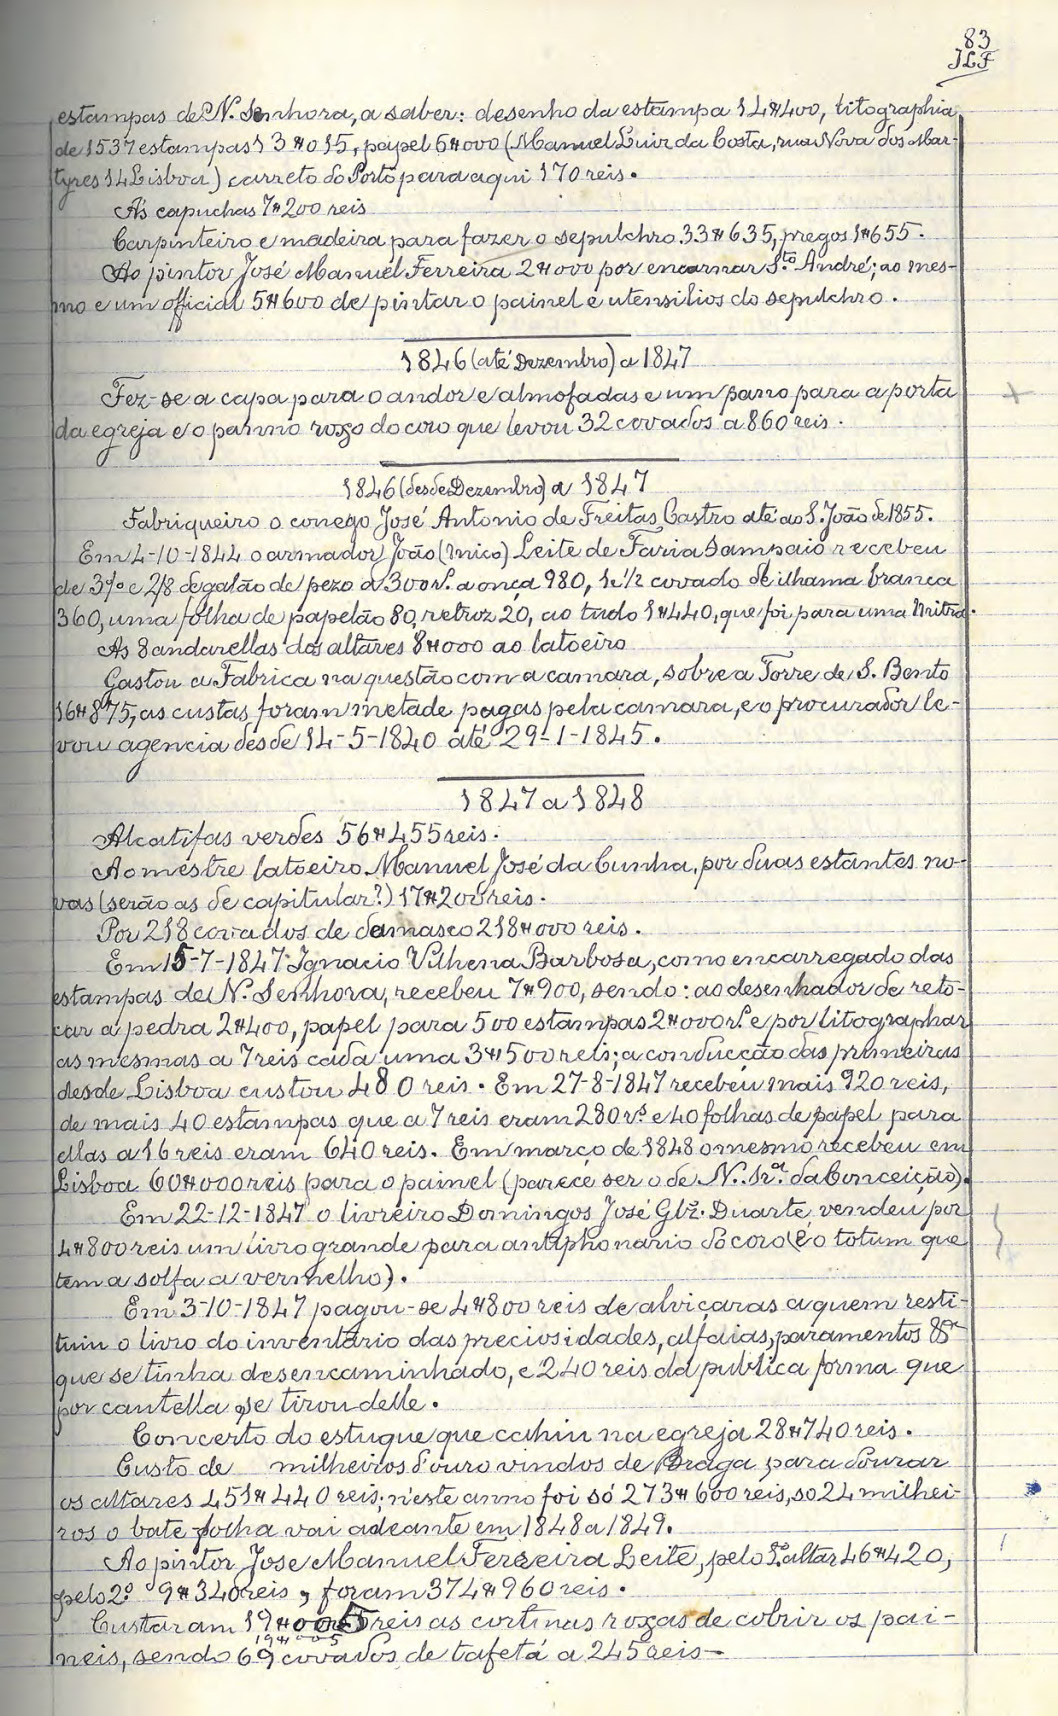 83
JLF
estampas de N. Senhora, a saber: desenho da estampa 14#400, litographia
de 1537 estampas 13#015, papel 6#000 (Manuel Luiz da Costa, rua Nova dos Mar-
tyres 14 Lisboa) carreto do Porto para aqui 170 reis.
Ás capuchas 7#200 reis
Carpinteiro e madeira para fazer o sepulchro 33#635, pregos 1#655.
Ao pintor José Manuel Ferreira 2#000 por encarnar S.to André; ao mes-
mo e um official 5#600 de pintar o painel e utensilios do sepulchro.
1846 (até Dezembro) a 1847
Fez-se a capa para o andor e almofadas e um panno para a porta
da egreja e o panno roxo do coro que levou 32 covados a 860 reis.
1846 (desde Dezembro) a 1847
Fabriqueiro o conego José Antonio de Freitas Castro até ao S. João de 1855.
Em 4-10-1844 o armador João (Mico) Leite de Faria Sampaio recebeu
de 3 /o e 2/8 de galão de pezo a 300 r.s a onça 980, 1 e 1/2 covado de ilhama branca
360, uma folha de papelão 80, retroz 20, ao tudo 1#440, que foi para uma Mitra.
As 8 andarellas dos altares 8#000 ao latoeiro
Gastou a Fabrica na questão com a camara, sobre a Torre de S. Bento
16#875, as custas foram metade pagas pela camara, e o procurador le-
vou agencia desde 14-5-1840 até 29-1-1845.
1847 a 1848
Alcatifas verdes 56#455 reis.
Ao mestre latoeiro Manuel José da Cunha, por duas estantes no-
vas (serão as de capitular?) 17#200 reis.
Por 218 covados de damasco 218#000 reis.
Em 15-7-1847 Ignacio Vilhena Barbosa, como encarregado das
estampas de N. Senhora, recebeu 7#900, sendo: ao desenhador de reto-
car a pedra 2#400, papel para 500 estampas 2#000 r.s e por litographar
as mesmas a 7 reis cada uma 3#500 reis; a conducção das primeiras
desde Lisboa custou 480 reis. Em 27-8-1847 recebeu mais 920 reis,
de mais 40 estampas que a 7 reis eram 280 r.s e 40 folhas de papel para
ellas a 16 reis eram 640 reis. Em março de 1848 o mesmo recebeu em
Lisboa 60#000 reis para o painel (parece ser o de N. Sr.a da Conceição).
Em 22-12-1847 o livreiro Domingos José Glz. Duarte, vendeu por
4#800 reis um livro grande para antiphonario do coro (é o totum que
tem a solfa a vermelho).
Em 3-10-1847 pagou-se 4#800 reis de alviçaras a quem resti-
tuiu o livro do inventario das preciosidades, alfaias, paramentos &a
que se tinha desencaminhado, e 240 reis da publica forma que
por cautella se tirou delle.
Concerto do estuque que cahiu na egreja 28#740 reis.
Custo de milheiros d'ouro vindos de Braga para dourar
os altares 451#440 reis; n'este anno foi só 273#600 reis, so 24 milhei-
ros o bate folha vai adeante em 1848 a 1849.
Ao pintor Jose Manuel Ferreira Leite, pelo 1.º altar 46#420,
pelo 2.º 9#340 reis, foram 374#960 reis.
Custaram 19#005 reis as cortinas roxas de cobrir os pai-
19#005
neis, sendo 69 covados de tafetá a 245 reis-